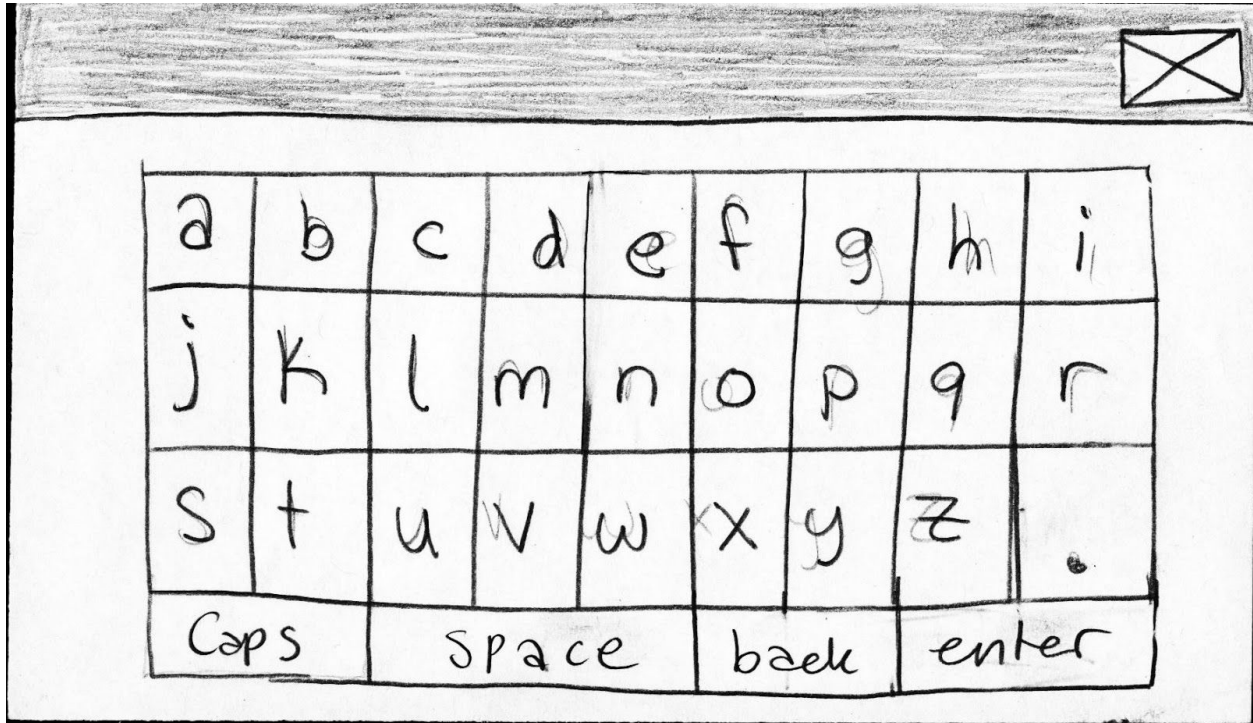 a b c d e f g h i
j k l m n o p q r
s t u v w x y z .
Caps space back enter